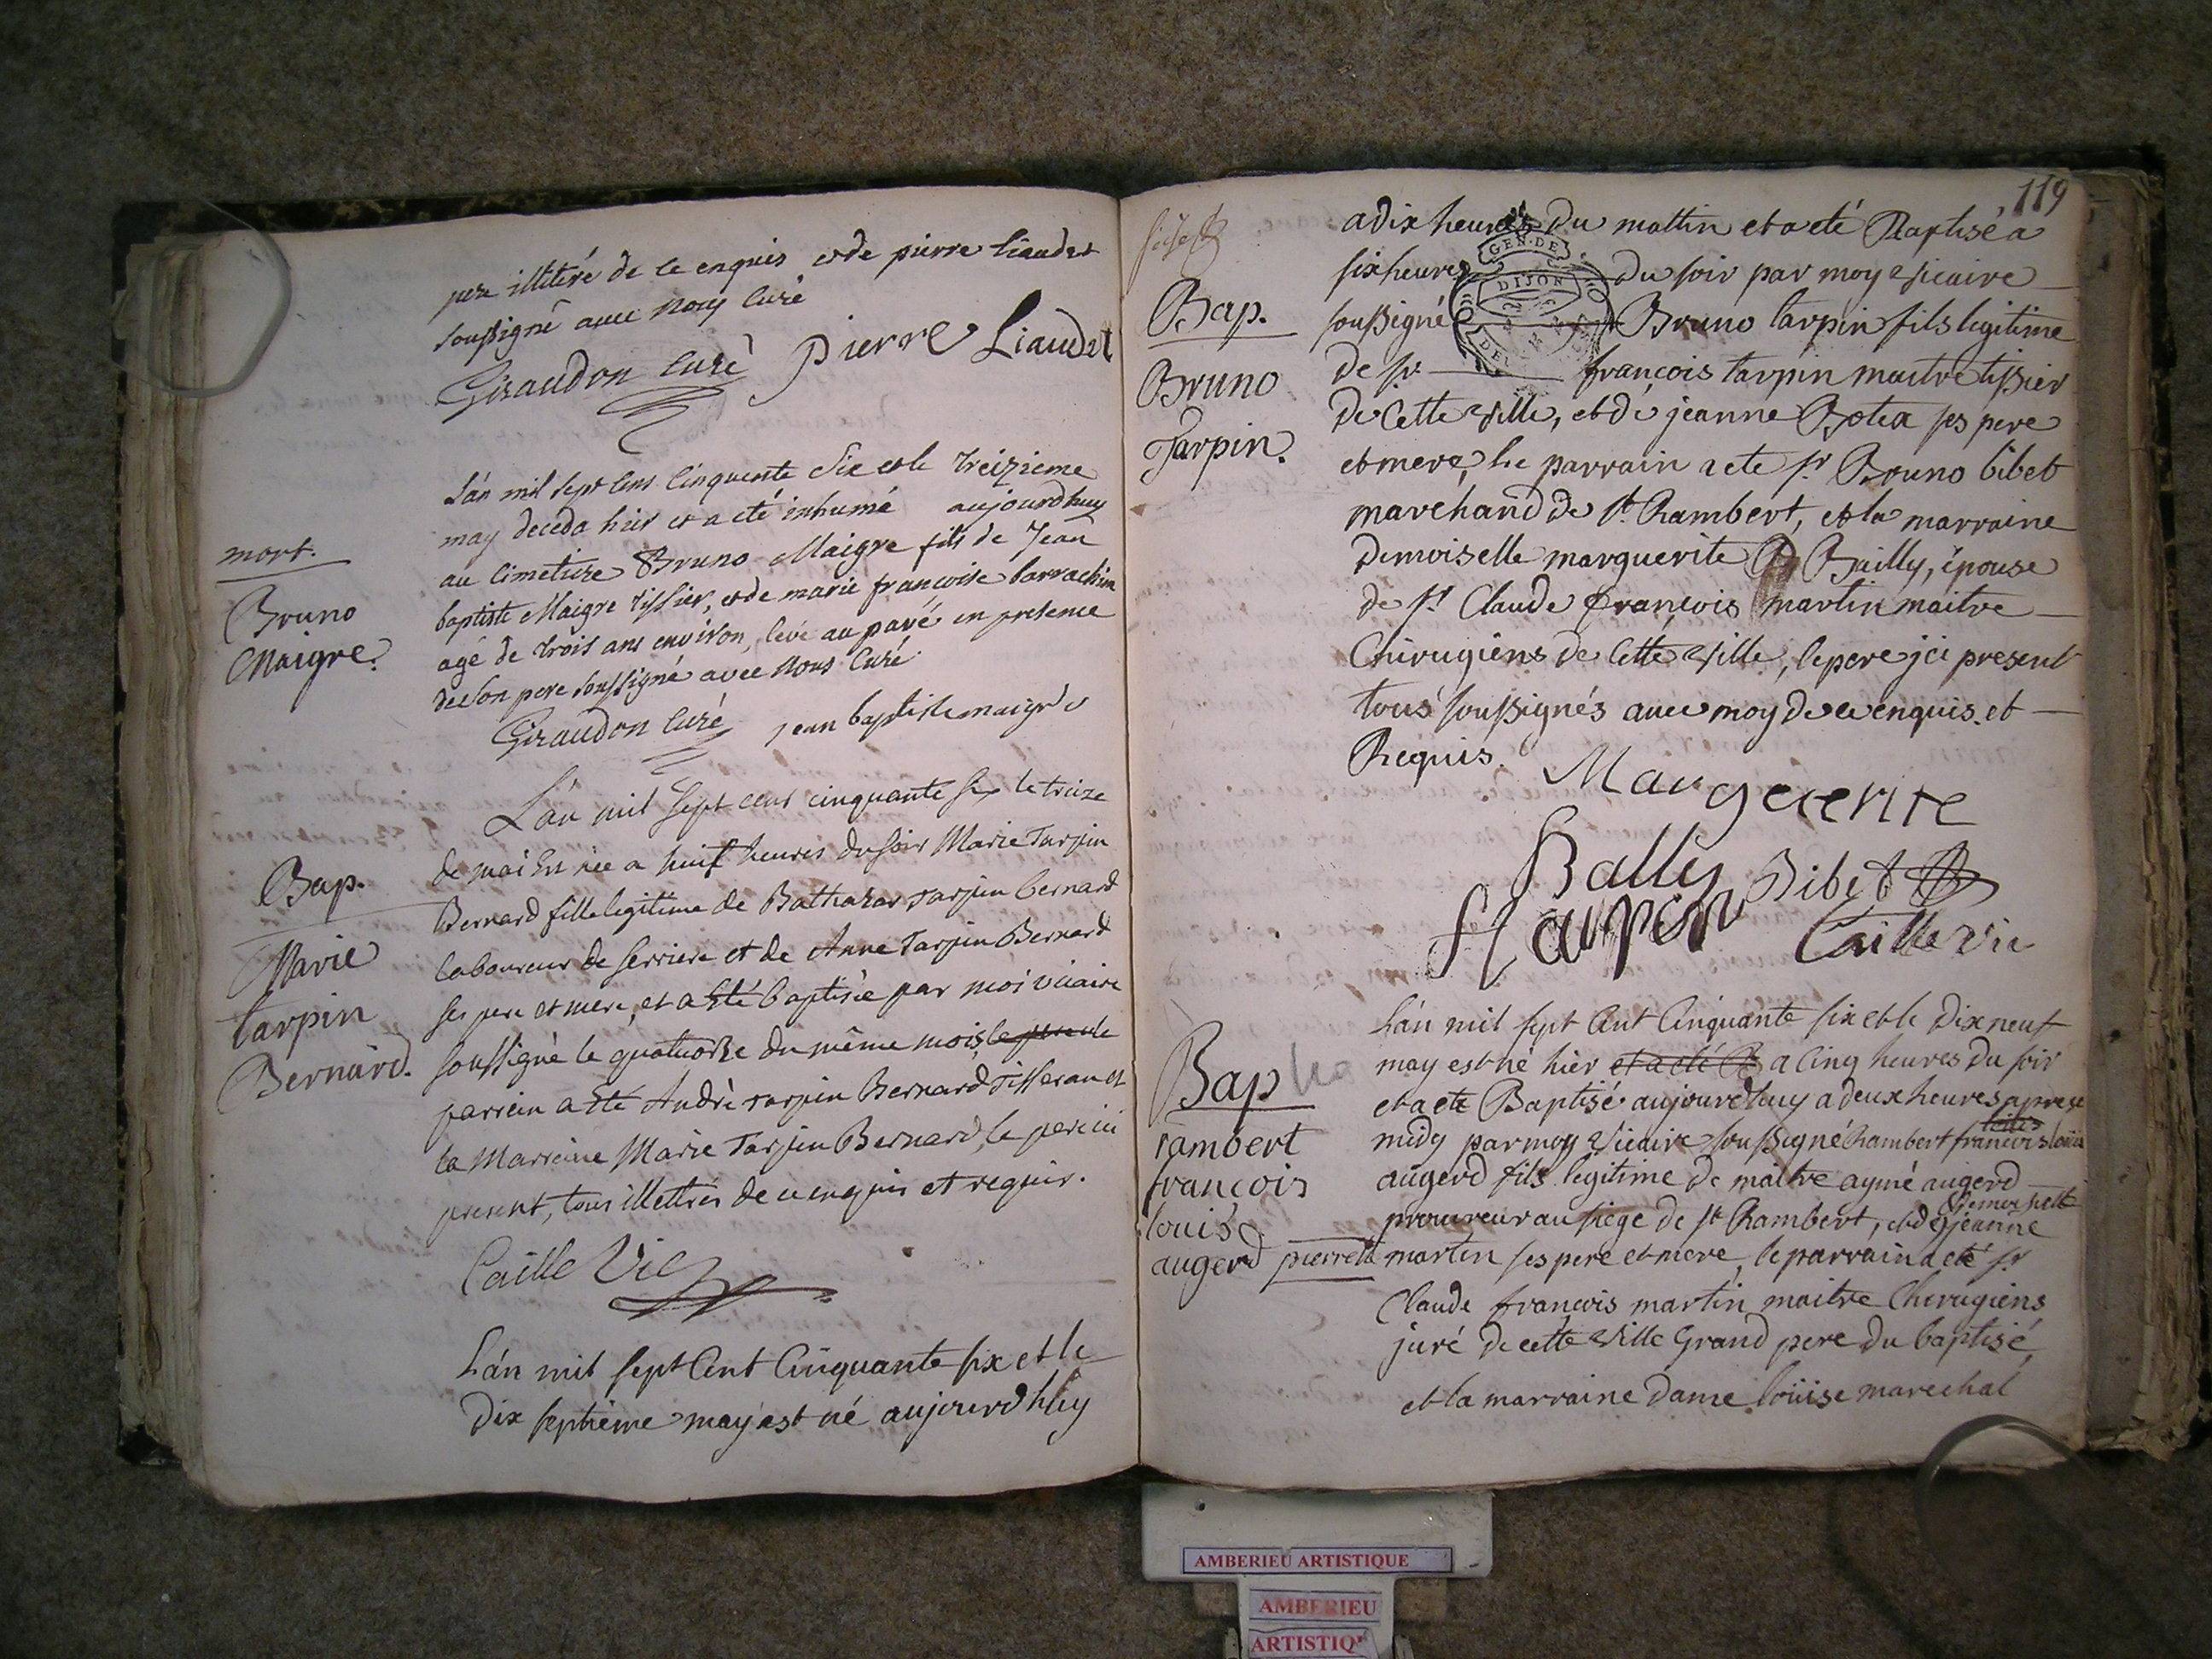 pere illiteré de ce enquis et de pierre liaudet
soussigné avec nous curé
Giraudon curé pierre Liaudet
L'an mil sept cens cinquente six et le treizieme
may deceda hier et a eté inhumé aujourdhuy
au cimetiere Bruno Maigre fils de Jean
baptiste Maigre tissier, et de marie francoise barrachin
agé de trois ans environ, levé au pavé en presence
de son pere soussigné avec nous curé
Giraudon curé jean baptiste maigre
mort.
Bruno
Maigre.
L'an mil sept cent cinquante six le treize
de mai est née a huit heures du soir Marie Tarpin
Bernard fille legitime de Balthazar tarpin bernard
laboureur de serriere et de Anne Tarpin Bernard
ses pere et mere, et a été baptisée par moi vicaire
soussigné le quatuorze du même mois, le
parrein a été André tarpin Bernard Tisseran et
la Marreine Marie Tarpin Bernard, le pere ici
present, tous illettrés de ce enquis et requis.
Caille Vic
Bap.
Marie
tarpin
Bernard.
L'an mil sept cent cinquante six et le
dix septieme may est né aujourdhuy
119
a dix heures du mattin et a eté Baptisé a
six heures du soir par moy vicaire
soussigné Bruno tarpin fils legitime
de sr. françois tarpin maitre tissier
de cette ville, et de jeanne Botex ses pere
et mere, le parrain a ete sr. Bruno bibet
marchand de st. Rambert, et la marraine
demoiselle marguerite Bailly, épouse
de sr. Claude françois martin maitre
Chirugiens de cette ville, le pere jci present
tous soussignés avec moy de ce enquis. et
Requis.
Margeuerite
Bally Bibet
f tarpin Caille vic
GEN. DE
DIJON
Bap.
Bruno
Tarpin.
L'an mil sept cent cinquante six et le dix neuf
may est né hier et a eté B a cinq heures du soir
et a ete Baptisé aujourdhuy a deux heures apres
midy par moy vicaire soussigné Rambert francois louis
augerd fils legitime de maitre aymé augerd
procureur au siege de st. Rambert, et de demoiselle jeanne
pierrete martin ses pere et mere, le parrain a eté sr.
Claude francois martin maitre Chirugiens
juré de cette ville Grand pere du baptisé
et la marraine dame loüise marechal
Bap
rambert
francois
louis
augerd
AMBERIEU ARTISTIQUE
AMBERIEU
ARTISTIQ